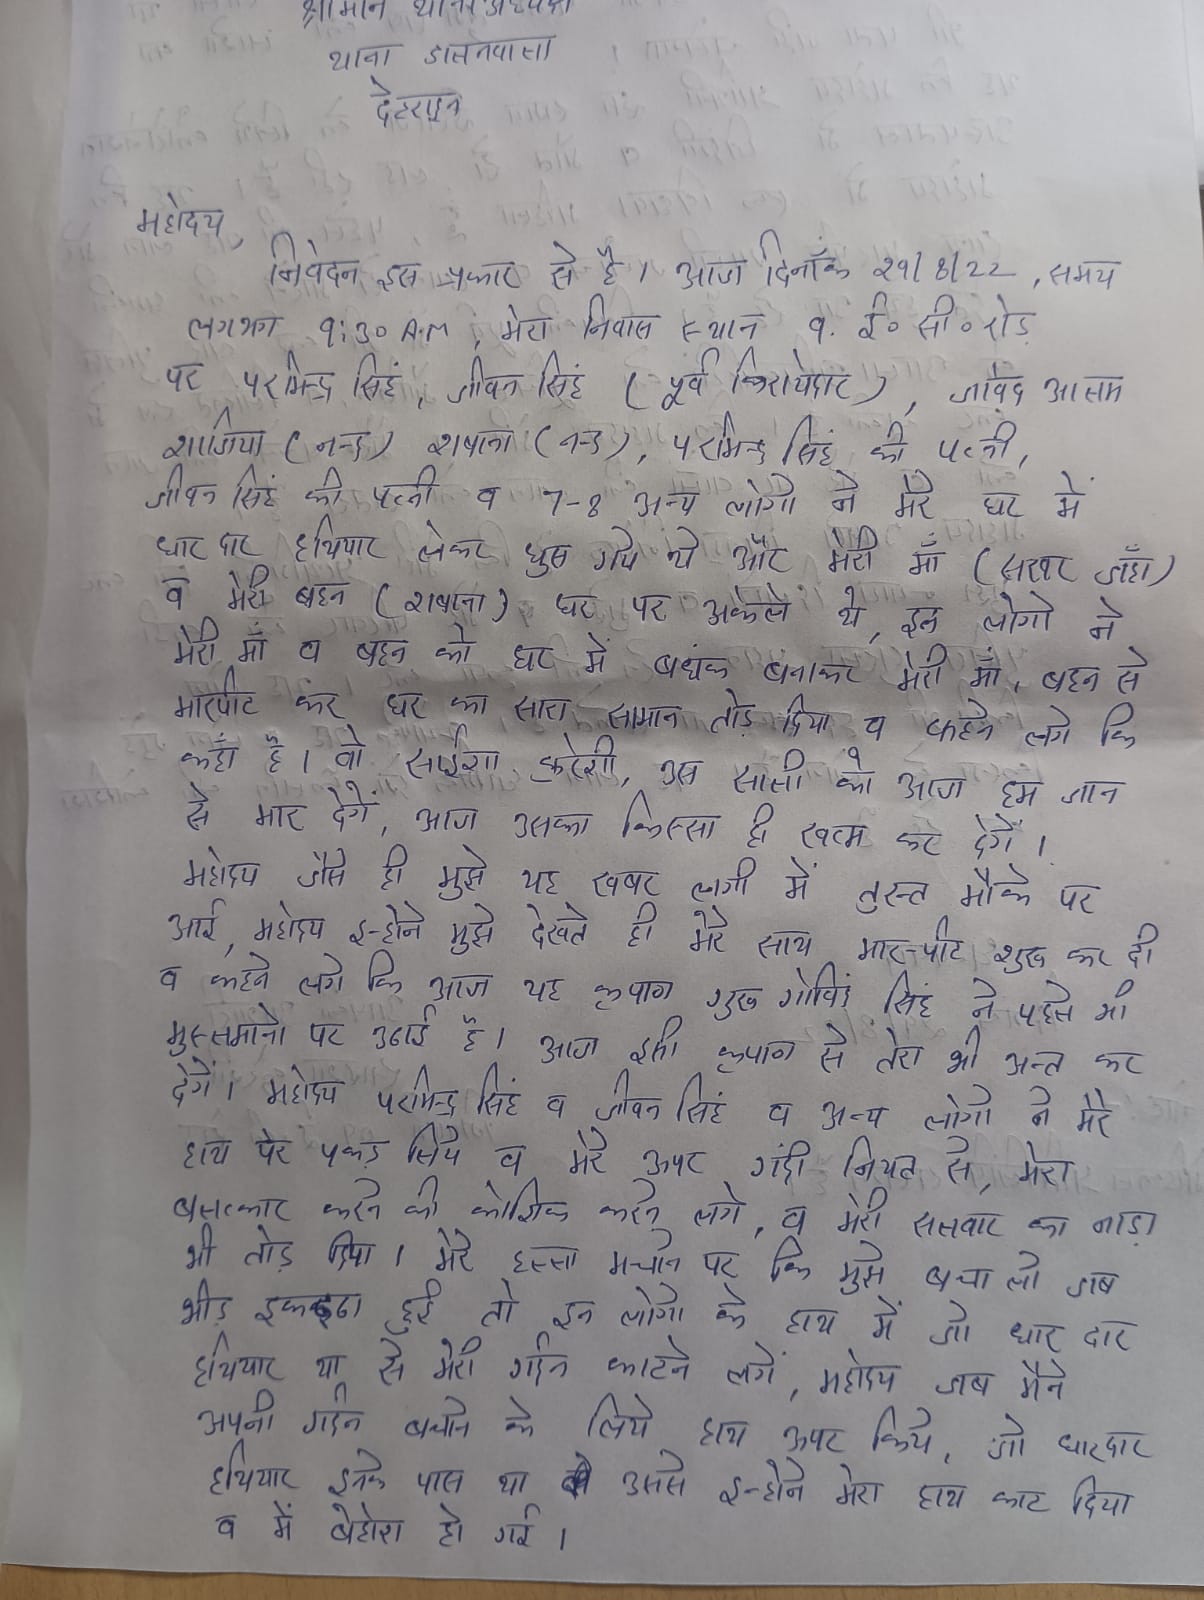 श्रीमान थानाअध्यक्ष
थाना डालनवाला
देहरादून
महोदय,
निवेदन इस प्रकार से है। आज दिनाँक 29/8/22, समय
लगभग 9:30 A.M, मेरा निवास स्थान 9. ई० सी० रोड़
पर परमिन्द्र सिहं, जीवन सिहं (पूर्व किरायेदार), जावेद आलम
शाजिया (नन्द) शबाना (नन्द), परमिन्द्र सिहं की पत्नी,
जीवन सिहं की पत्नी व 7-8 अन्य लोगो ने मेरे घर में
धार दार हथियार लेकर घुस गये थे और मेरी माँ (सरवर जँहा)
व मेरी बहन (शबाना) घर पर अकेले थे, इन लोगो ने
मेरी माँ व बहन को घर में बधंक बनाकर मेरी माँ, बहन से
मारपीट कर घर का सारा सामान तोड़ दिया व कहने लगे कि
कहाँ है। वो साईशा कुरेशी, उस साली को आज हम जान
से मार देगें, आज उसका किस्सा ही खत्म कर देगें।
महोदय जैसे ही मुझे यह खबर लगी में तुरन्त मौके पर
आई, महोदय इन्होने मुझे देखते ही मेरे साथ मार-पीट शुरू कर दी
व कहने लगे कि आज यह कृपाण गुरू गोविंद सिंह ने पहले भी
मुस्लमानो पर उठाई है। आज इसी कृपाण से तेरा भी अन्त कर
देगें। महोदय परमिन्द्र सिहं व जीवन सिहं व अन्य लोगो ने मेरे
हाथ पेर पकड़ लिये व मेरे ऊपर गंदी नियत से, मेरा
बलात्कार करने की कोशिक करने लगे, व मेरी सलवार का नाड़ा
भी तोड़ दिया। मेरे हल्ला मचाने पर कि मुझे बचा लो जब
भीड़ इकठ्ठा हुई तो इन लोगो के हाथ में जो धार दार
हथियार था से मेरी गर्दन काटने लगें, महोदय जब मैने
अपनी गर्दन बचाने के लिये हाथ ऊपर किये, जो धारदार
हथियार इनके पास था उससे इन्होने मेरा हाथ काट दिया
व में बेहोश हो गई।